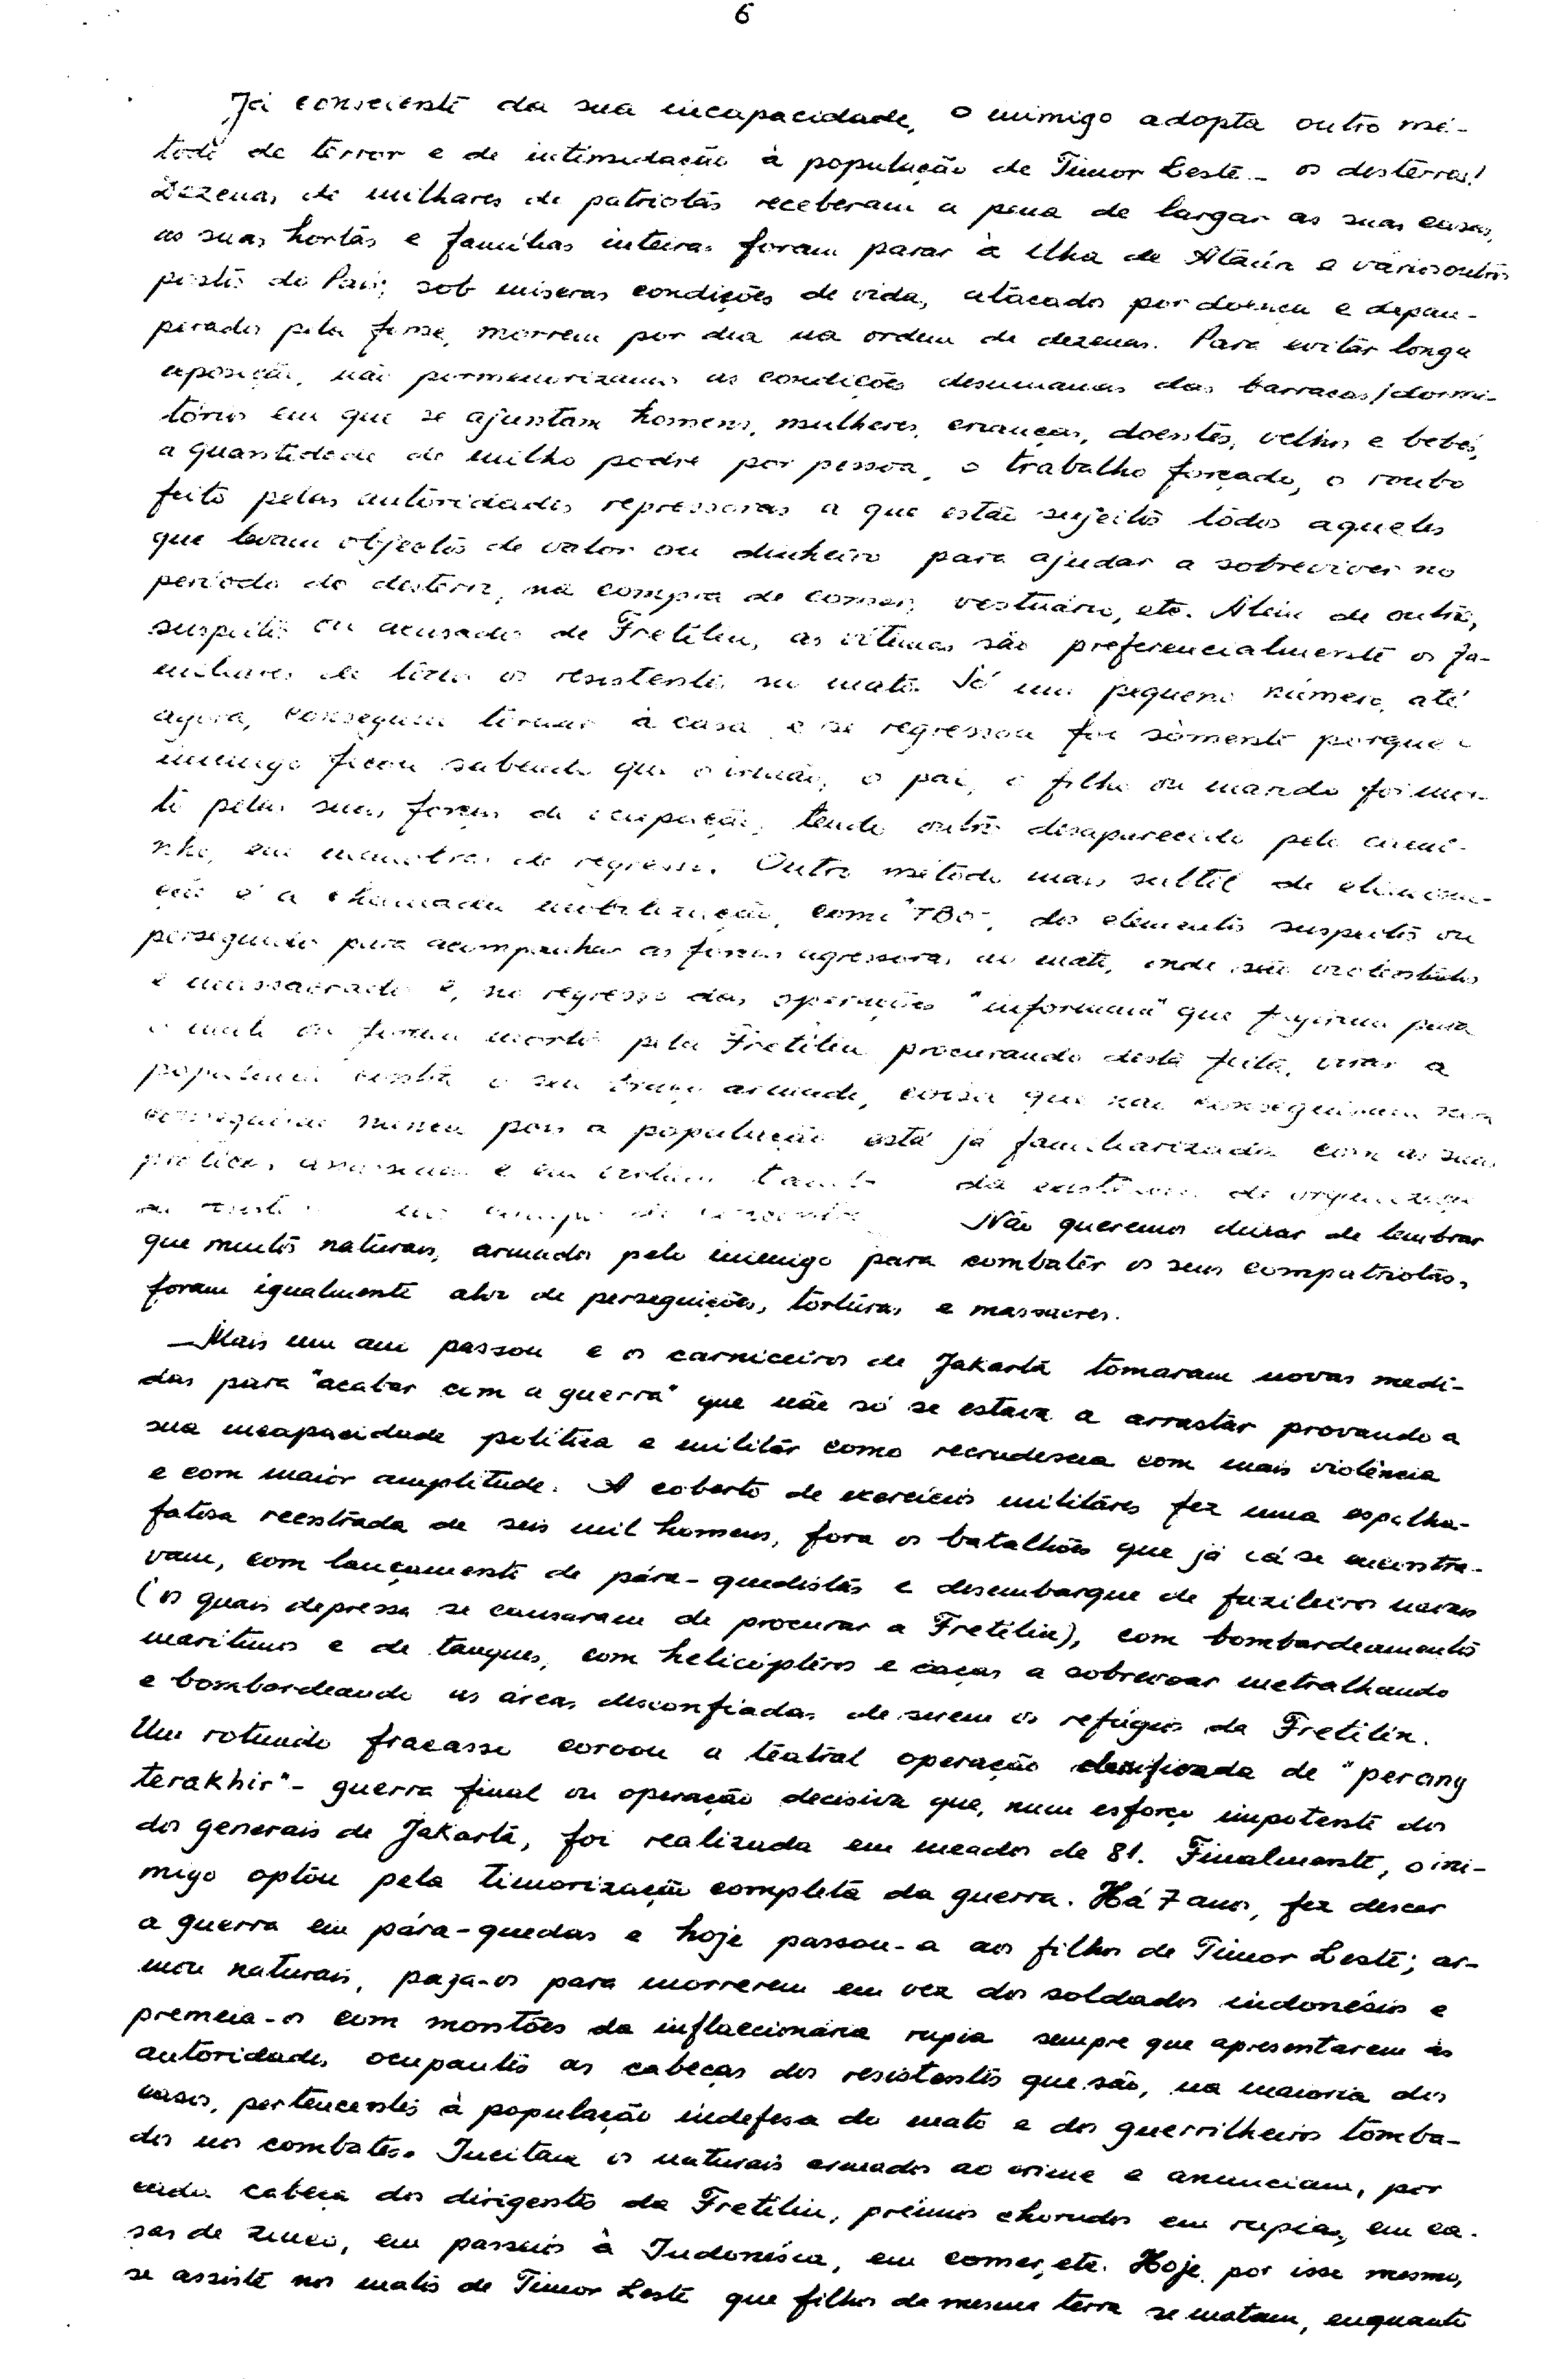 6
Já consciente da sua incapacidade, o inimigo adopta outro mé-
todo de terror e de intimidação à população de Timor Leste - os desterros!
Dezenas de milhares de patriotas receberam a pena de largar as suas casas,
as suas hortas e famílias inteiras foram parar à ilha de Ataúro e vários outros
postos do País; sob míseras condições de vida, atacados por doença e depau-
perados pela fome, morrem por dia na ordem de dezenas. Para evitar longa
exposição, não pormenorizamos as condições desumanas das barracas/dormi-
tórios em que se ajuntam homens, mulheres, crianças, doentes, velhos e bebés,
a quantidade de milho podre por pessoa, o trabalho forçado, o roubo
feito pelas autoridades repressoras a que estão sujeitos todos aqueles
que levam objectos de valor ou dinheiro para ajudar a sobreviver no
período do desterro, na compra de comer, vestuário, etc. Além de outros,
suspeitos ou acusados de Fretilin, as vítimas são preferencialmente os fa-
miliares de todos os resistentes no mato. Só um pequeno número, até
agora, conseguiu tornar à casa e se regressou foi sòmente porque o
inimigo ficou sabendo que o irmão, o pai, o filho ou marido foi mor-
to pelas suas forças de ocupação, tendo outros desaparecido pelo cami-
nho, em manobras de regresso. Outro método mais subtil de elimina-
ção é a chamada mobilização, como "TBO", dos elementos suspeitos ou
perseguidos para acompanhar as forças agressoras ao mato, onde são violentados
e massacrados e, no regresso das operações "informam" que fugiram para
o mato ou foram mortos pela Fretilin procurando desta feita, virar a
população contra o seu braço armado, coisa que não conseguiram nem
conseguirão nunca pois a população está já familiarizada com as suas
práticas assassinas e em da existência de
Não queremos deixar de lembrar
que muitos naturais, armados pelo inimigo para combater os seus compatriotas,
foram igualmente alvo de perseguições, torturas e massacres.
—Mais um ano passou e os carniceiros de Jakarta tomaram novas medi-
das para "acabar com a guerra" que não só se estava a arrastar provando a
sua incapacidade política e militar como recrudescia com mais violência
e com maior amplitude. A coberto de exercícios militares fez uma espalha-
fatosa reentrada de seis mil homens, fora os batalhões que já cá se encontra-
vam, com lançamento de pára-quedistas e desembarque de fuzileiros navais
(os quais depressa se cansaram de procurar a Fretilin), com bombardeamentos
marítimos e de tanques, com helicópteros e caças a sobrevoar metralhando
e bombardeando as áreas desconfiadas de serem os refúgios da Fretilin.
Um rotundo fracasso coroou a teatral operação classificada de "perang
terakhir"- guerra final ou operação decisiva que, num esforço impotente dos
dos generais de Jakarta, foi realizada em meados de 81. Finalmente, o ini-
migo optou pela timorização completa da guerra. Há 7 anos, fez descer
a guerra em pára-quedas e hoje passou-a aos filhos de Timor Leste; ar-
mou naturais, paga-os para morrerem em vez dos soldados indonésios e
premeia-os com montões da inflaccionária rupia sempre que apresentarem às
autoridades ocupantes as cabeças dos resistentes que são, na maioria dos
casos, pertencentes à população indefesa do mato e dos guerrilheiros tomba-
dos nos combates. Incitam os naturais armados ao crime e anunciam, por
cada cabeça dos dirigentes da Fretilin, prémios chorudos em rupias, em ca-
sas de zinco, em passeios à Indonésia, em comer, etc. Hoje, por isse mesmo,
se assiste nos matos de Timor Leste que filhos da mesma terra se matam, enquanto